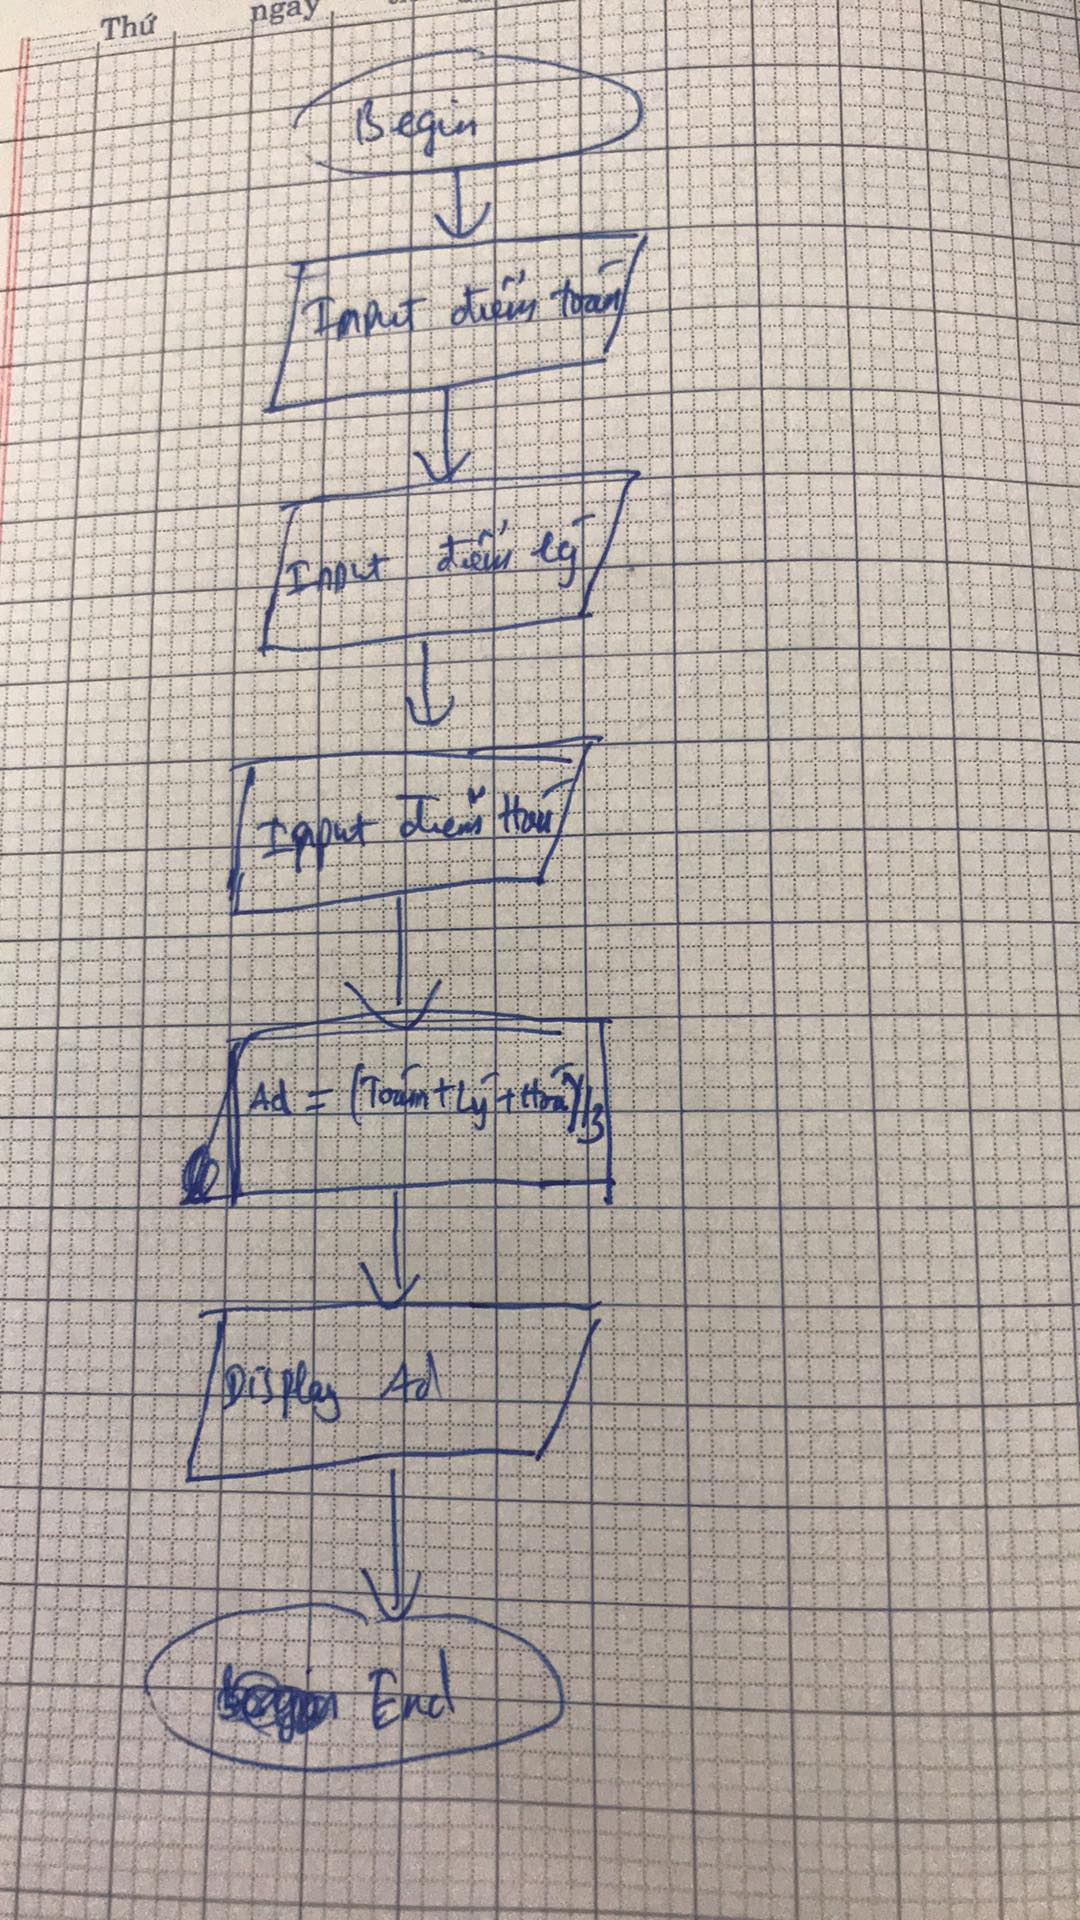 Thứ ngày
Begin
Input điểm toán
Input điểm lý
Input điểm Hoá
Ad = (Toán + Lý + Hoá)/3
Display Ad
End